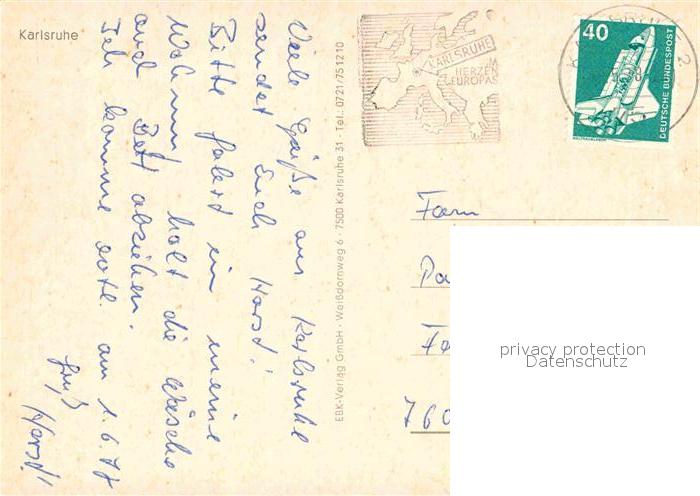 Karlsruhe
Viele Grüße aus Karlsruhe
sendet Euch Horst!
Bitte fahrt in meine
Wohnung holt die Wäsche
und Bett abziehen.
Ich komme evtl. am 1.6.78
Gruß
Horst!
EBK-Verlag GmbH · Weißdornweg 6 · 7500 Karlsruhe 31 · Tel.: 0721/751210
KARLSRUHE
IM
HERZEN
EUROPAS
40
DEUTSCHE BUNDESPOST
Fam
760
privacy protection
Datenschutz